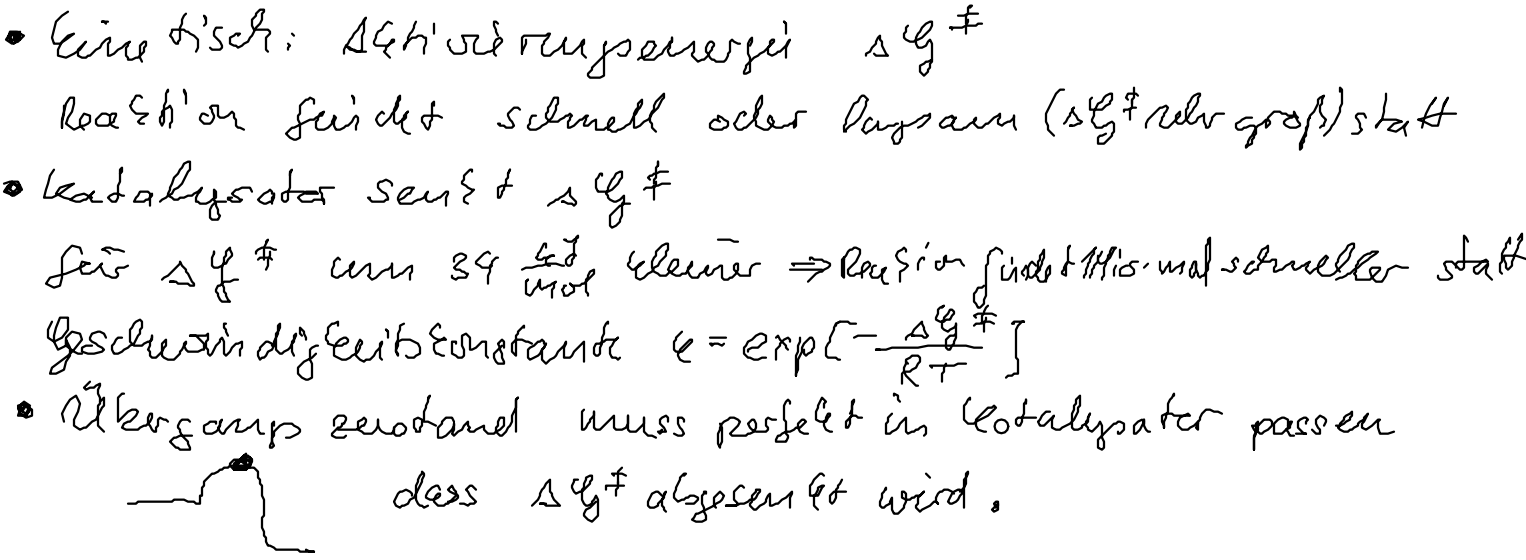 • kinetisch: Aktivierungsenergie ΔG‡
Reaktion findet schnell oder langsam (ΔG‡ sehr groß) statt
• Katalysator senkt ΔG‡
für ΔG‡ um 34 kJ/mol kleiner ⇒ Reaktion findet 1 Mio. mal schneller statt
Geschwindigkeitskonstante k = exp[-ΔG‡/RT]
• Übergangszustand muss perfekt in Katalysator passen
dass ΔG‡ abgesenkt wird.